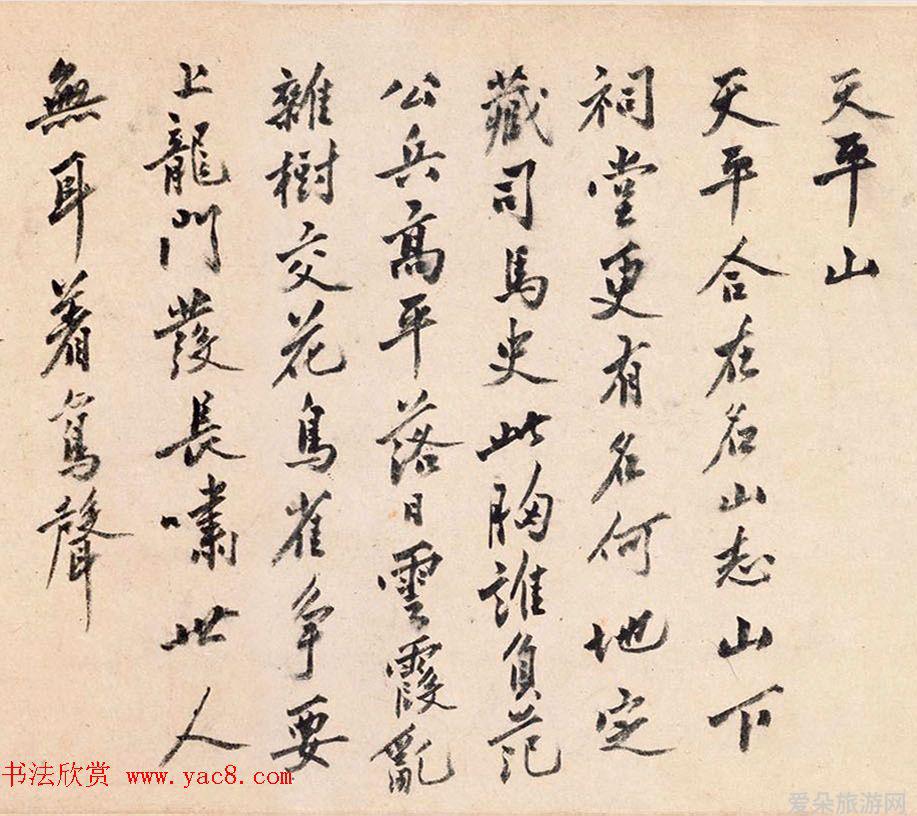 天平山
天平合在名山志山下
祠堂更有名何地定
藏司馬史此胸誰負范
公兵高平落日雲霞亂
雜樹交花鳥雀爭要
上龍門發長嘯世人
無耳着鸞聲
书法欣赏 www.yac8.com
爱朵旅游网